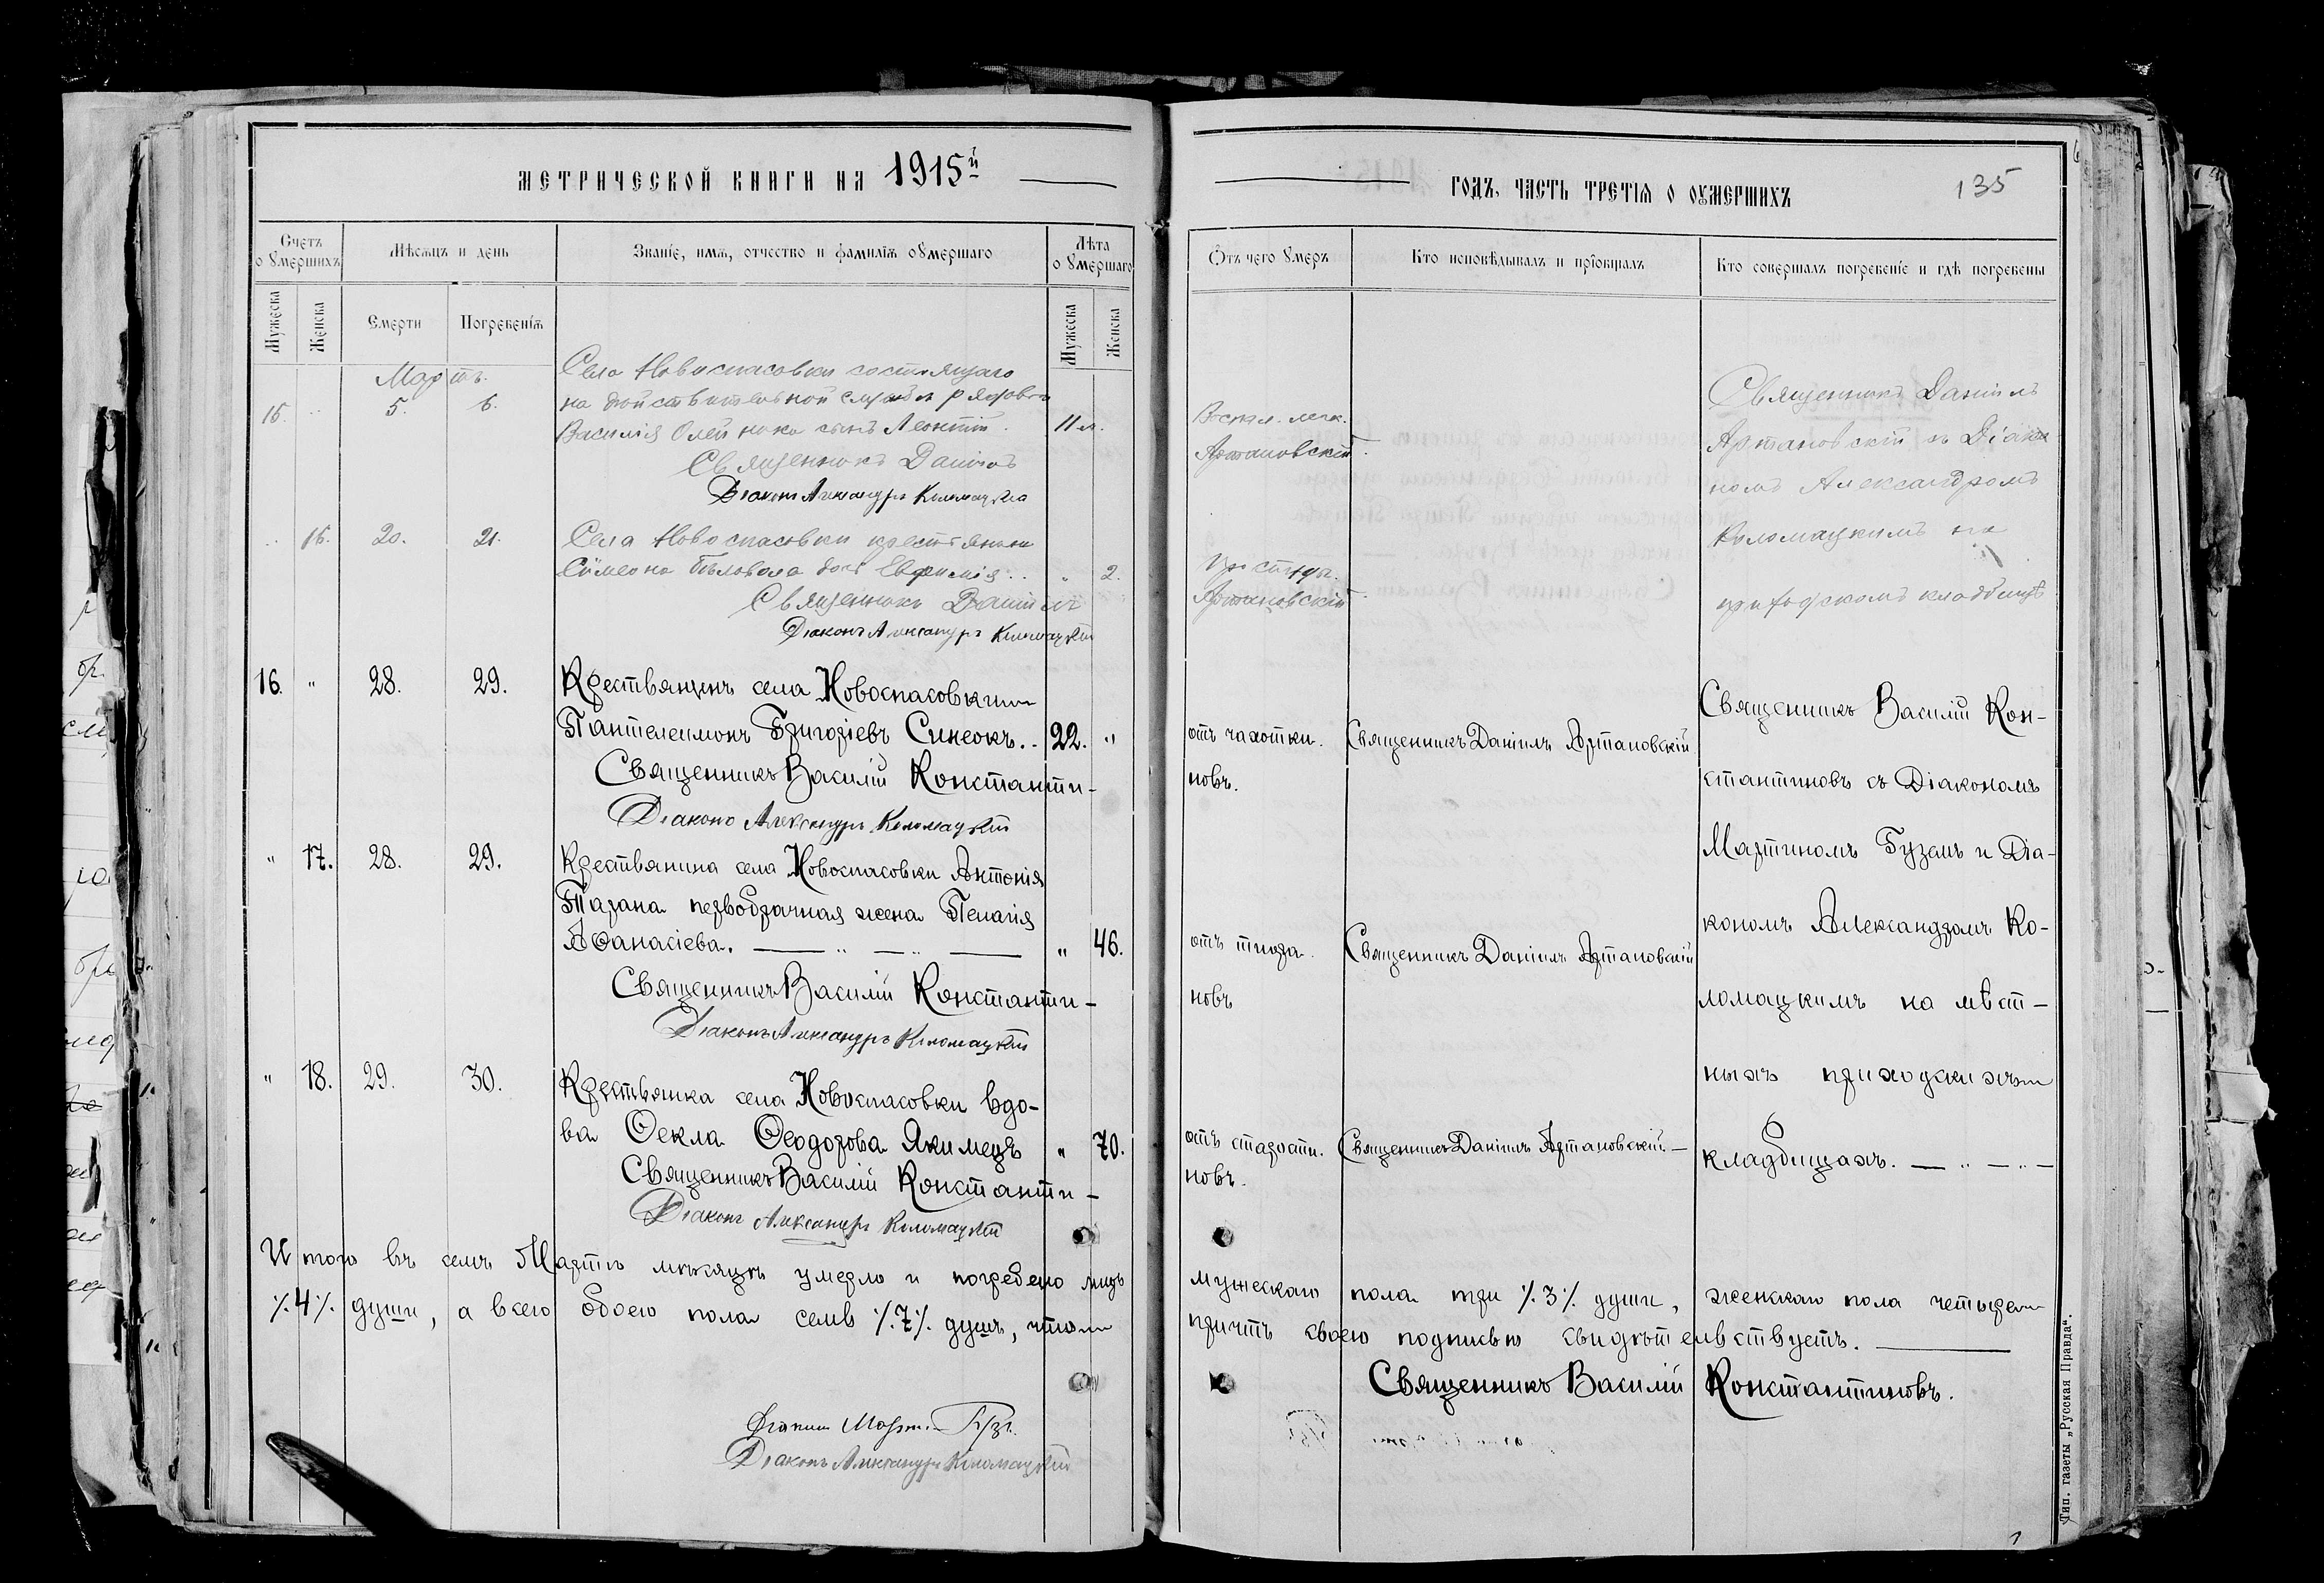 МЕТРИЧЕСКОЙ КНИГИ НА 1915й
Счетъ оумершихъ
Мѣсяцъ и день
Званіе, имя, отчество и фамилія оумершаго
Лѣта оумершаго
Мужеска
Женска
Смерти
Погребенія
Мужеска
Женска
Мартъ.
Села Новоспасовки состоящаго
15. 5. 6. на дѣйствительной службѣ рядового
Василія Олейника сынъ Леонтій. 11 м.
Священникъ Даніилъ
Діаконъ Александръ Коломацкій
15. 20. 21. Села Новоспасовки крестьянина
Симеона Бѣловола дочь Евфимія. " 2.
Священникъ Даніилъ
Діаконъ Александръ Коломацкій
16. " 28. 29. Крестьянинъ села Новоспасовки
Пантелеимонъ Григоріевъ Синеокъ. 22. "
Священникъ Василій Константи-
Діаконъ Александръ Коломацкій
" 17. 28. 29. Крестьянина села Новоспасовки Антонія
Тарана первобрачная жена Пелагія
Аѳанасіева. " 46.
Священникъ Василій Константи-
Діаконъ Александръ Коломацкій
" 18. 29. 30. Крестьянка села Новоспасовки вдо-
ва Ѳекла Ѳеодорова Якимецъ " 70.
Священникъ Василій Константи-
Діаконъ Александръ Коломацкій
Итого въ семъ Мартѣ мѣсяцѣ умерло и погребено лицъ
%4% души, а всего обоего пола семь %7% душъ, что
Діаконъ Мартинъ Гузь.
Діаконъ Александръ Коломацкій
ГОДЪ, ЧАСТЬ ТРЕТІЯ О ОУМЕРШИХЪ
135
Отъ чего оумеръ
Кто исповѣдывалъ и пріобщалъ
Кто совершалъ погребеніе и гдѣ погребены
Воспал. легк.
Артановскій.
простуды.
Артановскій.
Священникъ Даніилъ
Артановскій съ Діако
номъ Александромъ
Коломацкимъ на
приходскомъ кладбищѣ
отъ чахотки. Священникъ Даніилъ Артановскій
новъ.
отъ тифа. Священникъ Даніилъ Артановскій
новъ
отъ старости. Священникъ Даніилъ Артановскій.
новъ.
Священникъ Василій Кон-
стантиновъ съ Діакономъ
Мартиномъ Гуземъ и Діа-
кономъ Александромъ Ко-
ломацкимъ на мѣст-
ныхъ приходскихъ
кладбищахъ.
мужескаго пола три %3% души, женскаго пола четыре
причтъ своею подписью свидѣтельствуетъ.
Священникъ Василій Константиновъ.
Тип. газеты „Русская Правда“.